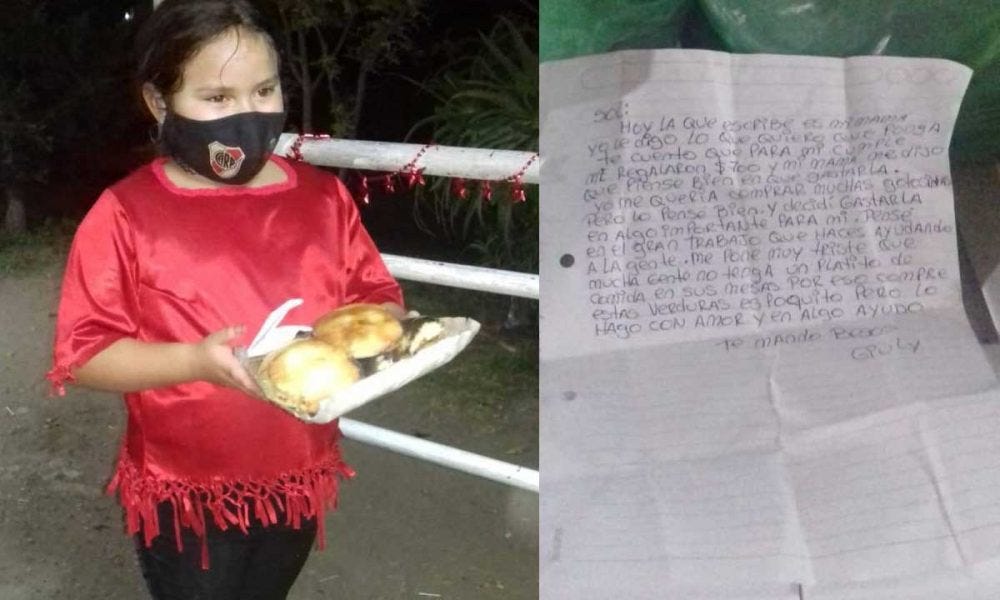 CARP
SOL:
HOY LA QUE ESCRIBE ES MI MAMA
YO LE DIGO LO QUE QUIERO QUE PONGA
TE CUENTO QUE PARA MI CUMPLE
ME REGALARON $700 Y MI MAMA ME DIJO
QUE PIENSE BIEN EN QUE GASTARLA.
YO ME QUERIA COMPRAR MUCHAS GOLOSINAS
PERO LO PENSE BIEN. Y DECIDI GASTARLA
EN ALGO IMPORTANTE PARA MI. PENSE
EN EL GRAN TRABAJO QUE HACES AYUDANDO
A LA GENTE. ME PONE MUY TRISTE QUE
MUCHA GENTE NO TENGA UN PLATITO DE
COMIDA EN SUS MESAS POR ESO COMPRE
ESTAS VERDURAS ES POQUITO PERO LO
HAGO CON AMOR Y EN ALGO AYUDO
TE MANDO BESOS
GIULY